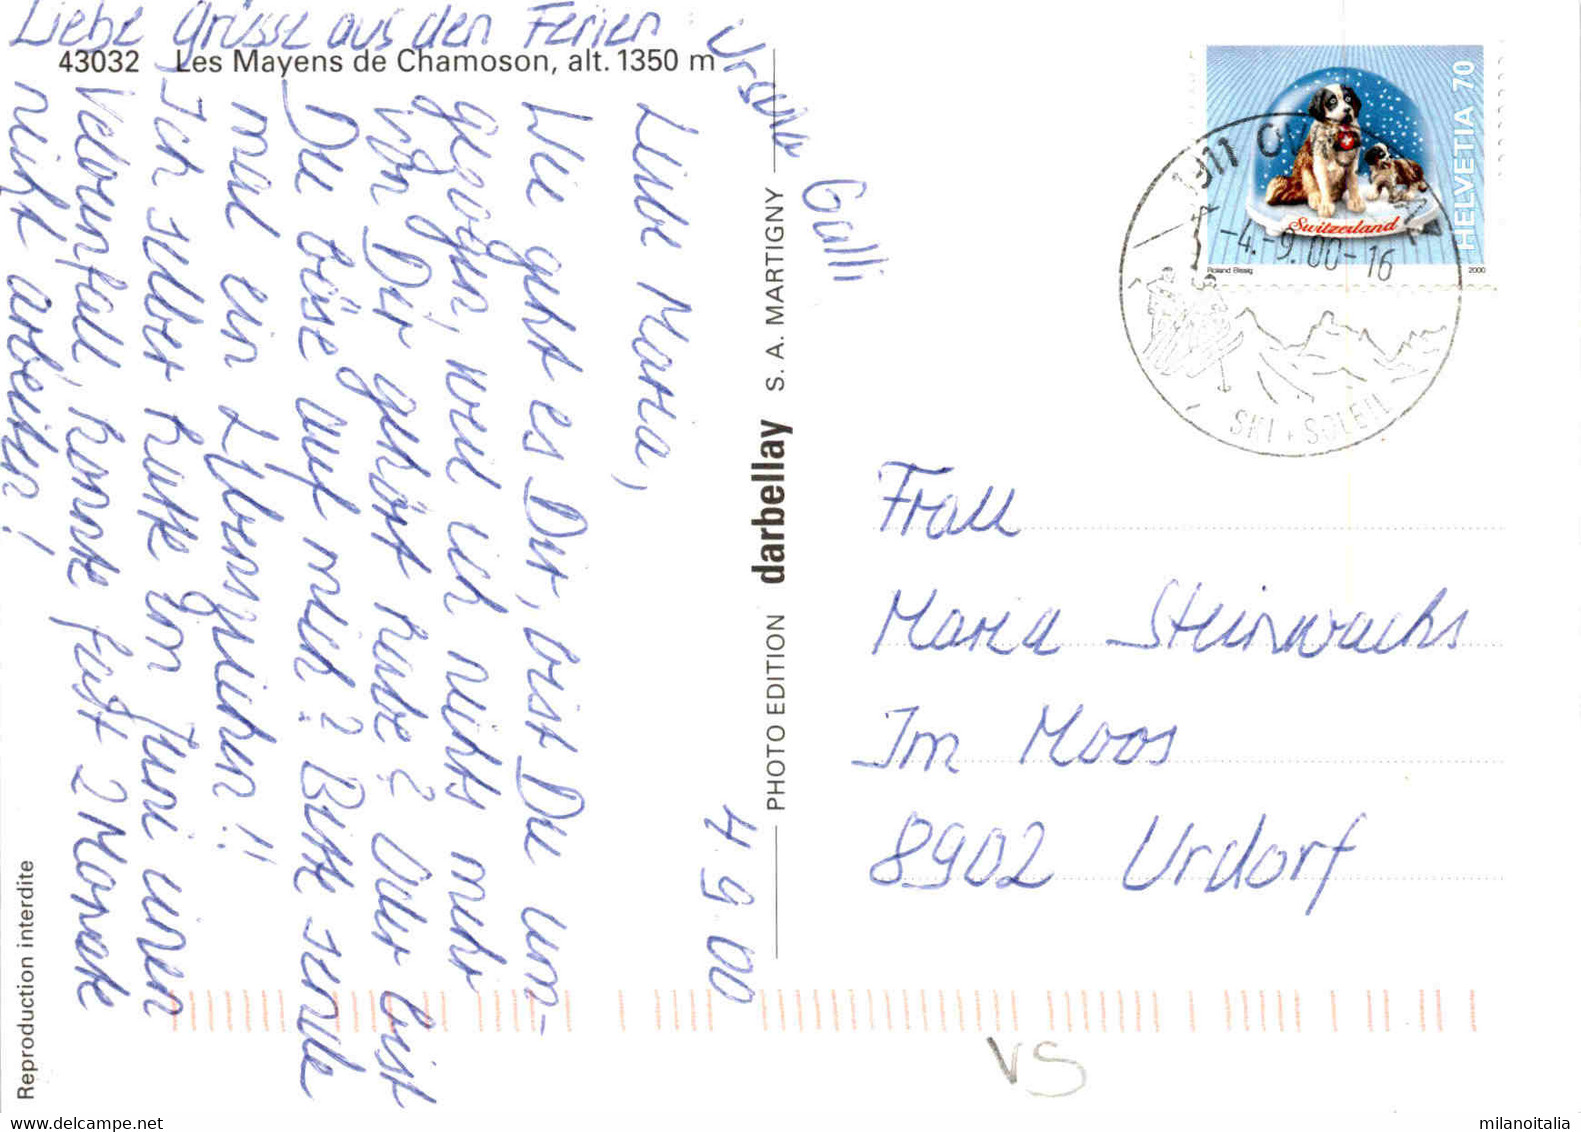 Liebe Grüsse aus den Ferien
Ursula
Galli
43032 Les Mayens de Chamoson, alt. 1350 m
4. 9. 00
Liebe Maria,
Wie geht es Dir, bist Du um-
gezogen, weil ich nichts mehr
von Dir gehört habe? Oder bist
Du böse auf mich? Bitte sende
mal ein Lebenszeichen!!
Ich selber hatte im Juni einen
Velounfall, konnte fast 2 Monate
nicht arbeiten!
Reproduction interdite
PHOTO EDITION darbellay S. A. MARTIGNY
HELVETIA 70
Switzerland
Roland Bissig
2000
1911
-4.-9.00-16
SKI + SOLEIL
Frau
Maria Steinwachs
Im Moos
8902 Urdorf
VS
milanoitalia